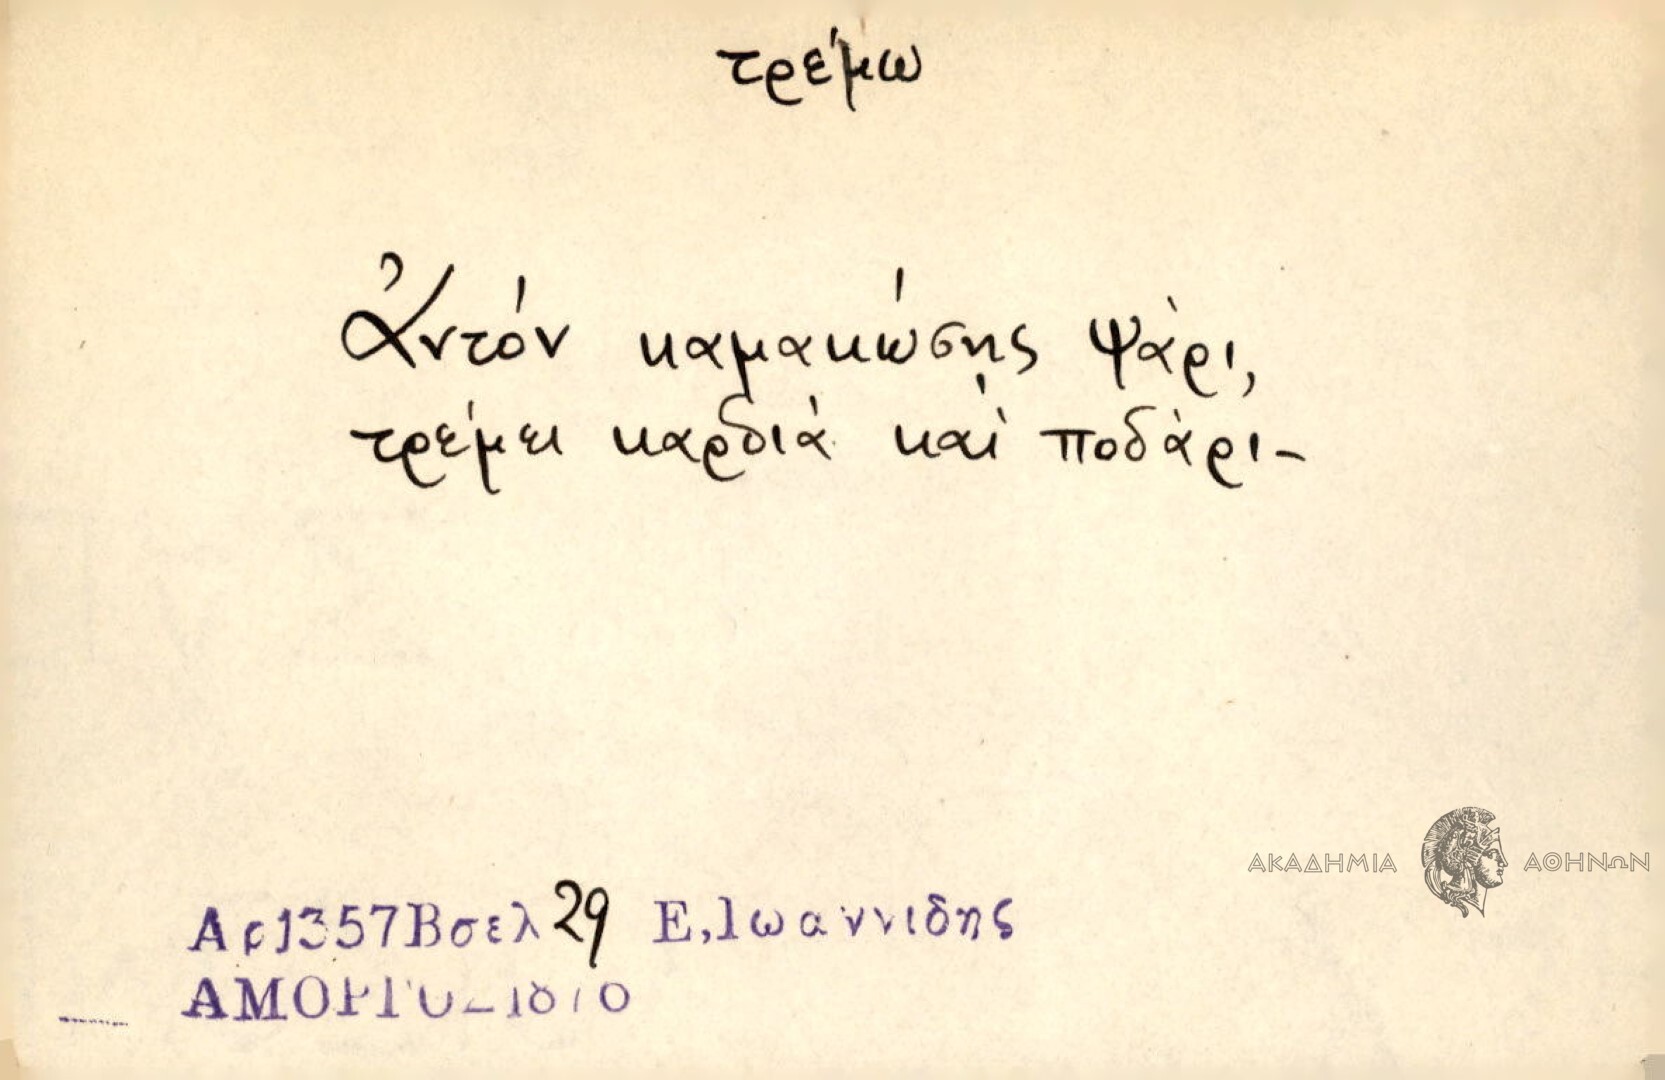 τρέμω
Ἀντόν καμακώσης ψάρι,
τρέμει καρδιά καί ποδάρι-
ΑΚΑΔΗΜΙΑ ΑΘΗΝΩΝ
Αρ1357Βσελ 29 Ε,Ιωαννιδης
ΑΜΟΡΓΟΣ